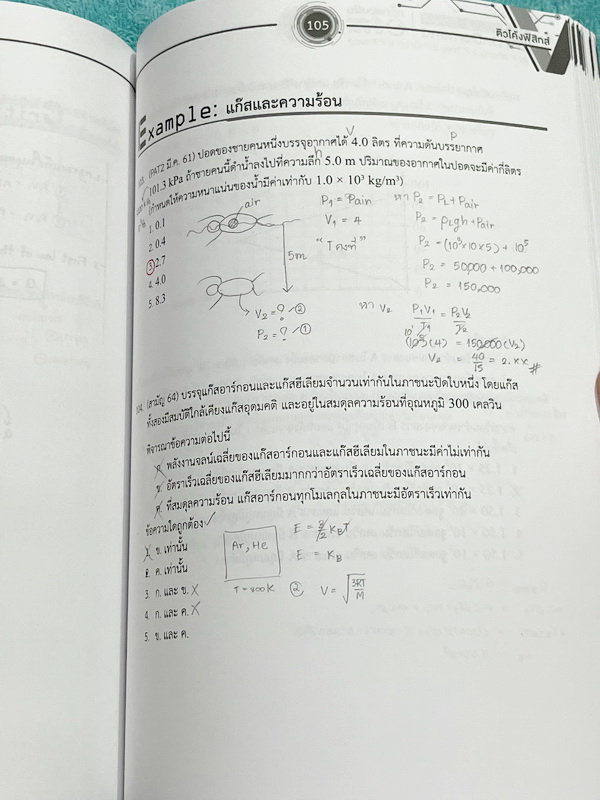 105
ติวโค้งฟิสิกส์
Example: แก๊สและความร้อน
(PAT2 มี.ค. 61) ปอดของชายคนหนึ่งบรรจุอากาศได้ 4.0 ลิตร ที่ความดันบรรยากาศ
101.3 kPa ถ้าชายคนนี้ดำน้ำลงไปที่ความลึก 5.0 m ปริมาณของอากาศในปอดจะมีค่ากี่ลิตร
(กำหนดให้ความหนาแน่นของน้ำมีค่าเท่ากับ 1.0 × 10³ kg/m³)
1. 0.1
2. 0.4
3. 2.7
4. 4.0
5. 8.3
V
P
h
air
5m
V₂ = ? ②
P₂ = ? ①
P₁ = Pair
V₁ = 4
"T คงที่"
หา P₂ = PL + Pair
P₂ = ρLgh + Pair
P₂ = (10³×10×5) + 10⁵
P₂ = 50,000 + 100,000
P₂ = 150,000
หา V₂ P₁V₁/T₁ = P₂V₂/T₂
10⁵(4) = 150,000(V₂)
V₂ = 40/15 = 2.xx #
104. (สามัญ 64) บรรจุแก๊สอาร์กอนและแก๊สฮีเลียมจำนวนเท่ากันในภาชนะปิดใบหนึ่ง โดยแก๊ส
ทั้งสองมีสมบัติใกล้เคียงแก๊สอุดมคติ และอยู่ในสมดุลความร้อนที่อุณหภูมิ 300 เคลวิน
พิจารณาข้อความต่อไปนี้
ก. พลังงานจลน์เฉลี่ยของแก๊สอาร์กอนและแก๊สฮีเลียมในภาชนะมีค่าไม่เท่ากัน
ข. อัตราเร็วเฉลี่ยของแก๊สฮีเลียมมากกว่าอัตราเร็วเฉลี่ยของแก๊สอาร์กอน
ค. ที่สมดุลความร้อน แก๊สอาร์กอนทุกโมเลกุลในภาชนะมีอัตราเร็วเท่ากัน
ข้อความใดถูกต้อง
1. ข. เท่านั้น
2. ค. เท่านั้น
3. ก. และ ข.
4. ก. และ ค.
5. ข. และ ค.
Ar, He
T = 300 K
E = 3/2 KBT
E = KB
② V = √3RT/M